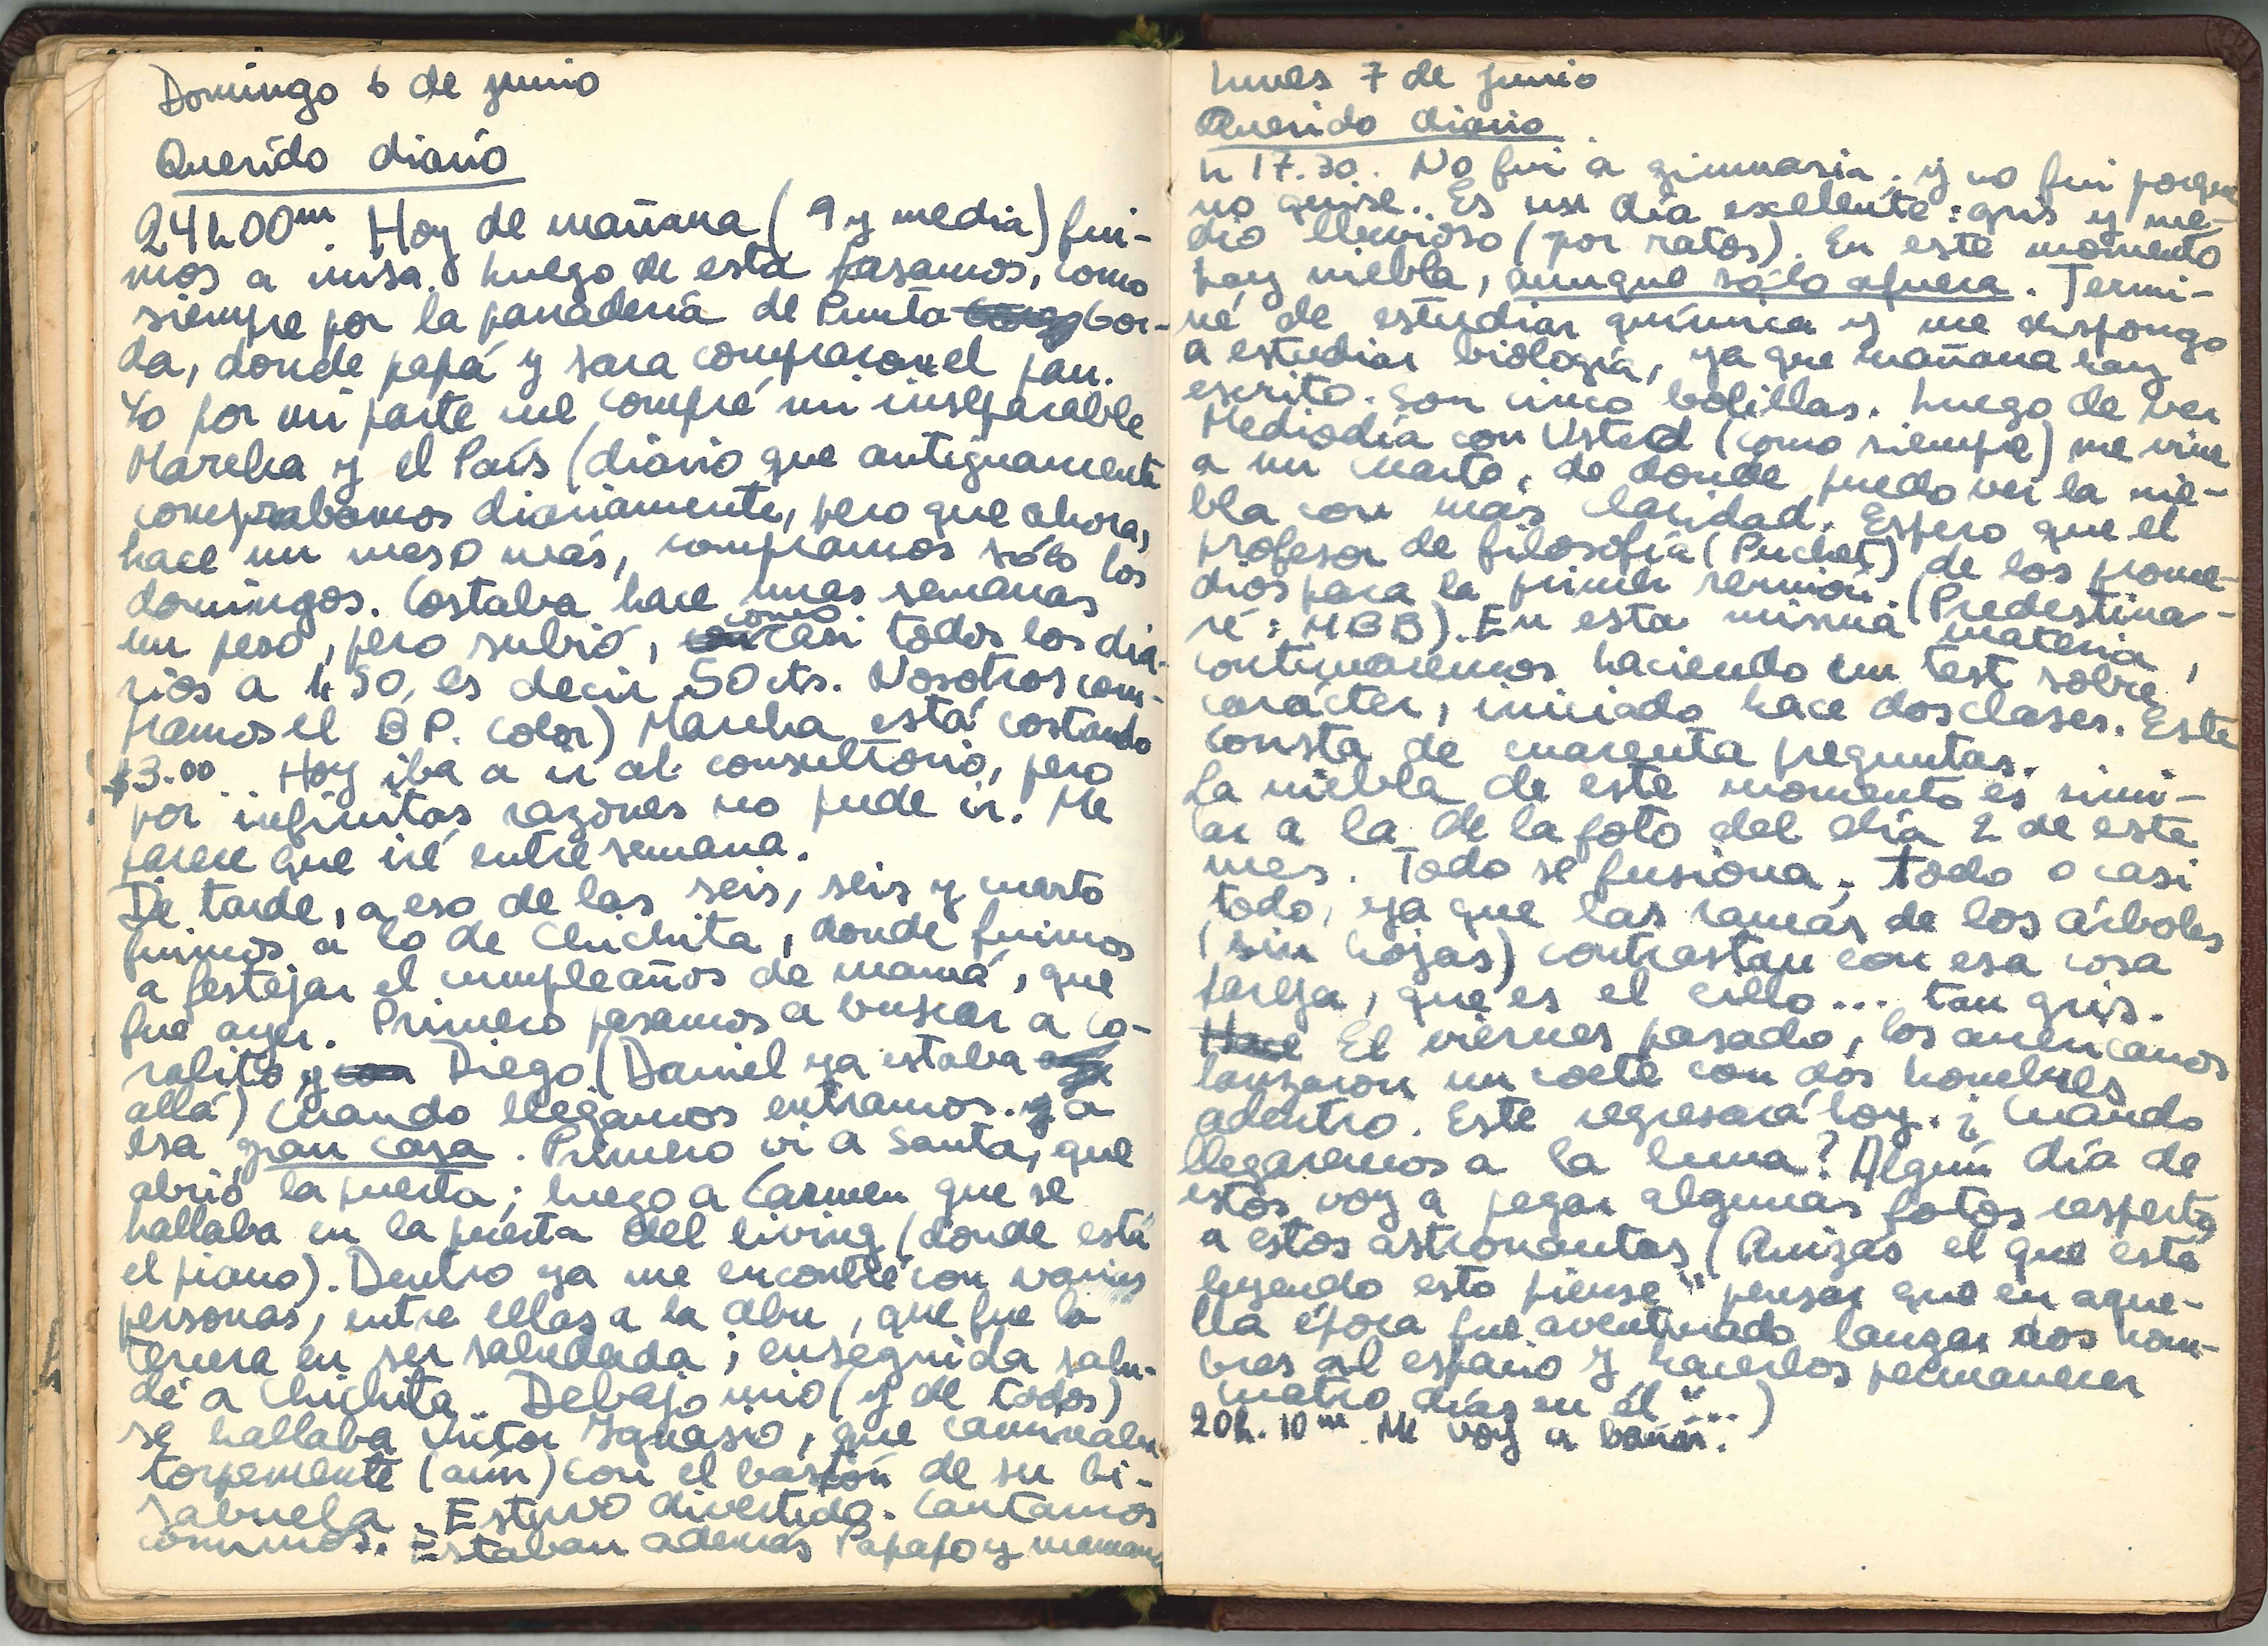 Domingo 6 de junio
Querido diario
24h00m. Hoy de mañana (9 y media) fui-
mos a misa. Luego de esta pasamos, como
siempre por la panadería de Punta Gor-
da, donde papá y Sara compraron el pan.
Yo por mi parte me compré mi inseparable
Marcha y el País (diario que antiguamente
comprabamos diariamente, pero que ahora,
hace un mes o más, compramos sólo los
domingos. Costaba hace unas semanas
un peso, pero subió, como casi todos los dia-
rios a 1,50, es decir 50 cts. Nosotros com-
pramos el BP. color) Marcha está costando
$3.00 Hoy iba a ir al consultorio, pero
por infinitas razones no pude ir. Me
parece que iré entre semana.
De tarde, a eso de las seis, seis y cuarto
fuimos a lo de Chichita, donde fuimos
a festejar el cumpleaños de mamá, que
fue ayer. Primero pasamos a buscar a Co-
ralito y Diego (Daniel ya estaba
allá) Cuando llegamos entramos a
esa gran casa. Primero vi a Santa, que
abrió la puerta; luego a Carmen que se
hallaba en la puerta del living (donde está
el piano). Dentro ya me encontré con varias
personas, entre ellas a la abu, que fue la
tercera en ser saludada; enseguida salu-
dé a Chichita. Debajo mio (y de todos)
se hallaba Victor Ignasio, que caminaba
torpemente (aún) con el bastón de su bi-
sabuela. Estuvo divertido. Cantamos
comimos. Estaban además Papapo y mamama
Lunes 7 de junio
Querido diario
h 17.30. No fui a gimnasia. y no fui porque
no quise. Es un día exelente: gris y me-
dio lluvioso (por ratos). En este momento
hay niebla, aunque sólo afuera. Termi-
né de estudiar química y me dispongo
a estudiar biología, ya que mañana hay
escrito. Son cinco bolillas. Luego de ver
Mediodía con Usted (como siempre) me vine
a mi cuarto, de donde puedo ver la nie-
bla con más claridad. Espero que el
profesor de filosofía (Puchet) de los prome-
dios para la primer reunión. (Predestina-
ré: MBB). En esta misma materia,
continuaremos haciendo un test sobre
carácter, iniciado hace dos clases. Este
consta de cuarenta preguntas.
La niebla de este momento es simi-
lar a la de la foto del día 2 de este
mes. Todo se fusiona; todo o casi
todo, ya que las ramas de los árboles
(sin hojas) contrastan con esa cosa
pareja, que es el cielo... tan gris.
Hace El viernes pasado, los americanos
lanzaron un coete con dos hombres
adentro. Este regresará hoy. ¿Cuándo
llegaremos a la luna? Algún día de
estos voy a pegar algunas fotos respecto
a estos astronautas (Quizás el que esté
leyendo esto piense "pensar que en aque-
lla época fue aventurado lanzar dos hom-
bres al espacio y hacerlos permanecer
cuatro días en él"...)
20h. 10m. Me voy a bañar.